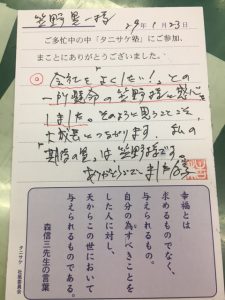 笠野晃一様
29年1月23日
ご多忙中の中「タニサケ塾」にご参加、
まことにありがとうございました。
「会社をよくしたい！」との
一所懸命の笠野様に感心
しました。そのように思うことで、
成長につながります。私の
「期待の星」は、笠野様です。
ありがとうございました。
幸福とは
求めるものでなく、
与えられるもの。
自分の為すべきことを
した人に対し、
天からこの世において
与えられるものである。
森信三先生の言葉
タニサケ 社風委員会